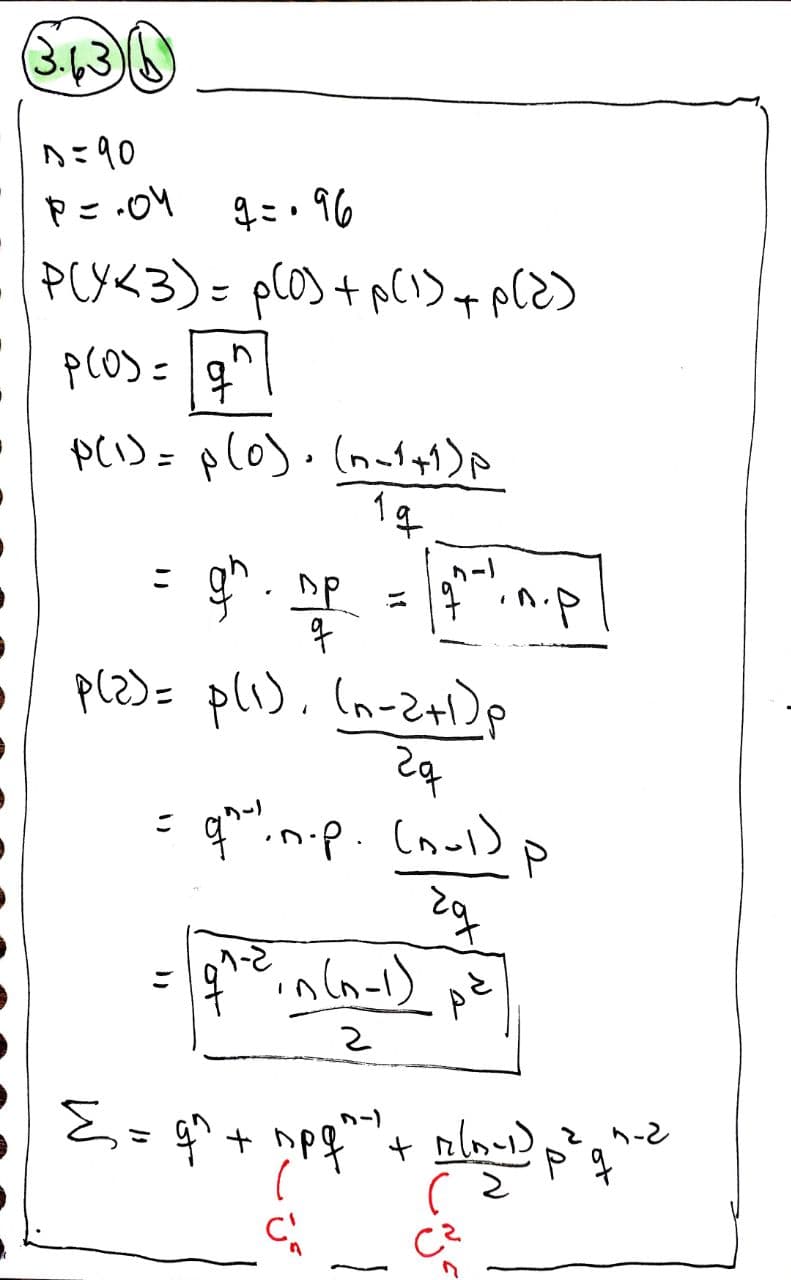 3.63 b
n = 90
p = .04 q = .96
P(Y<3) = p(0) + p(1) + p(2)
p(0) = qⁿ
p(1) = p(0) · (n-1+1)p / 1q
= qⁿ · np / q = qⁿ⁻¹ · n · p
p(2) = p(1) · (n-2+1)p / 2q
= qⁿ⁻¹ · n · p · (n-1) p / 2q
= qⁿ⁻² · n(n-1) / 2 p²
Σ = qⁿ + npqⁿ⁻¹ + n(n-1) / 2 p² qⁿ⁻²
C¹ₙ C²ₙ